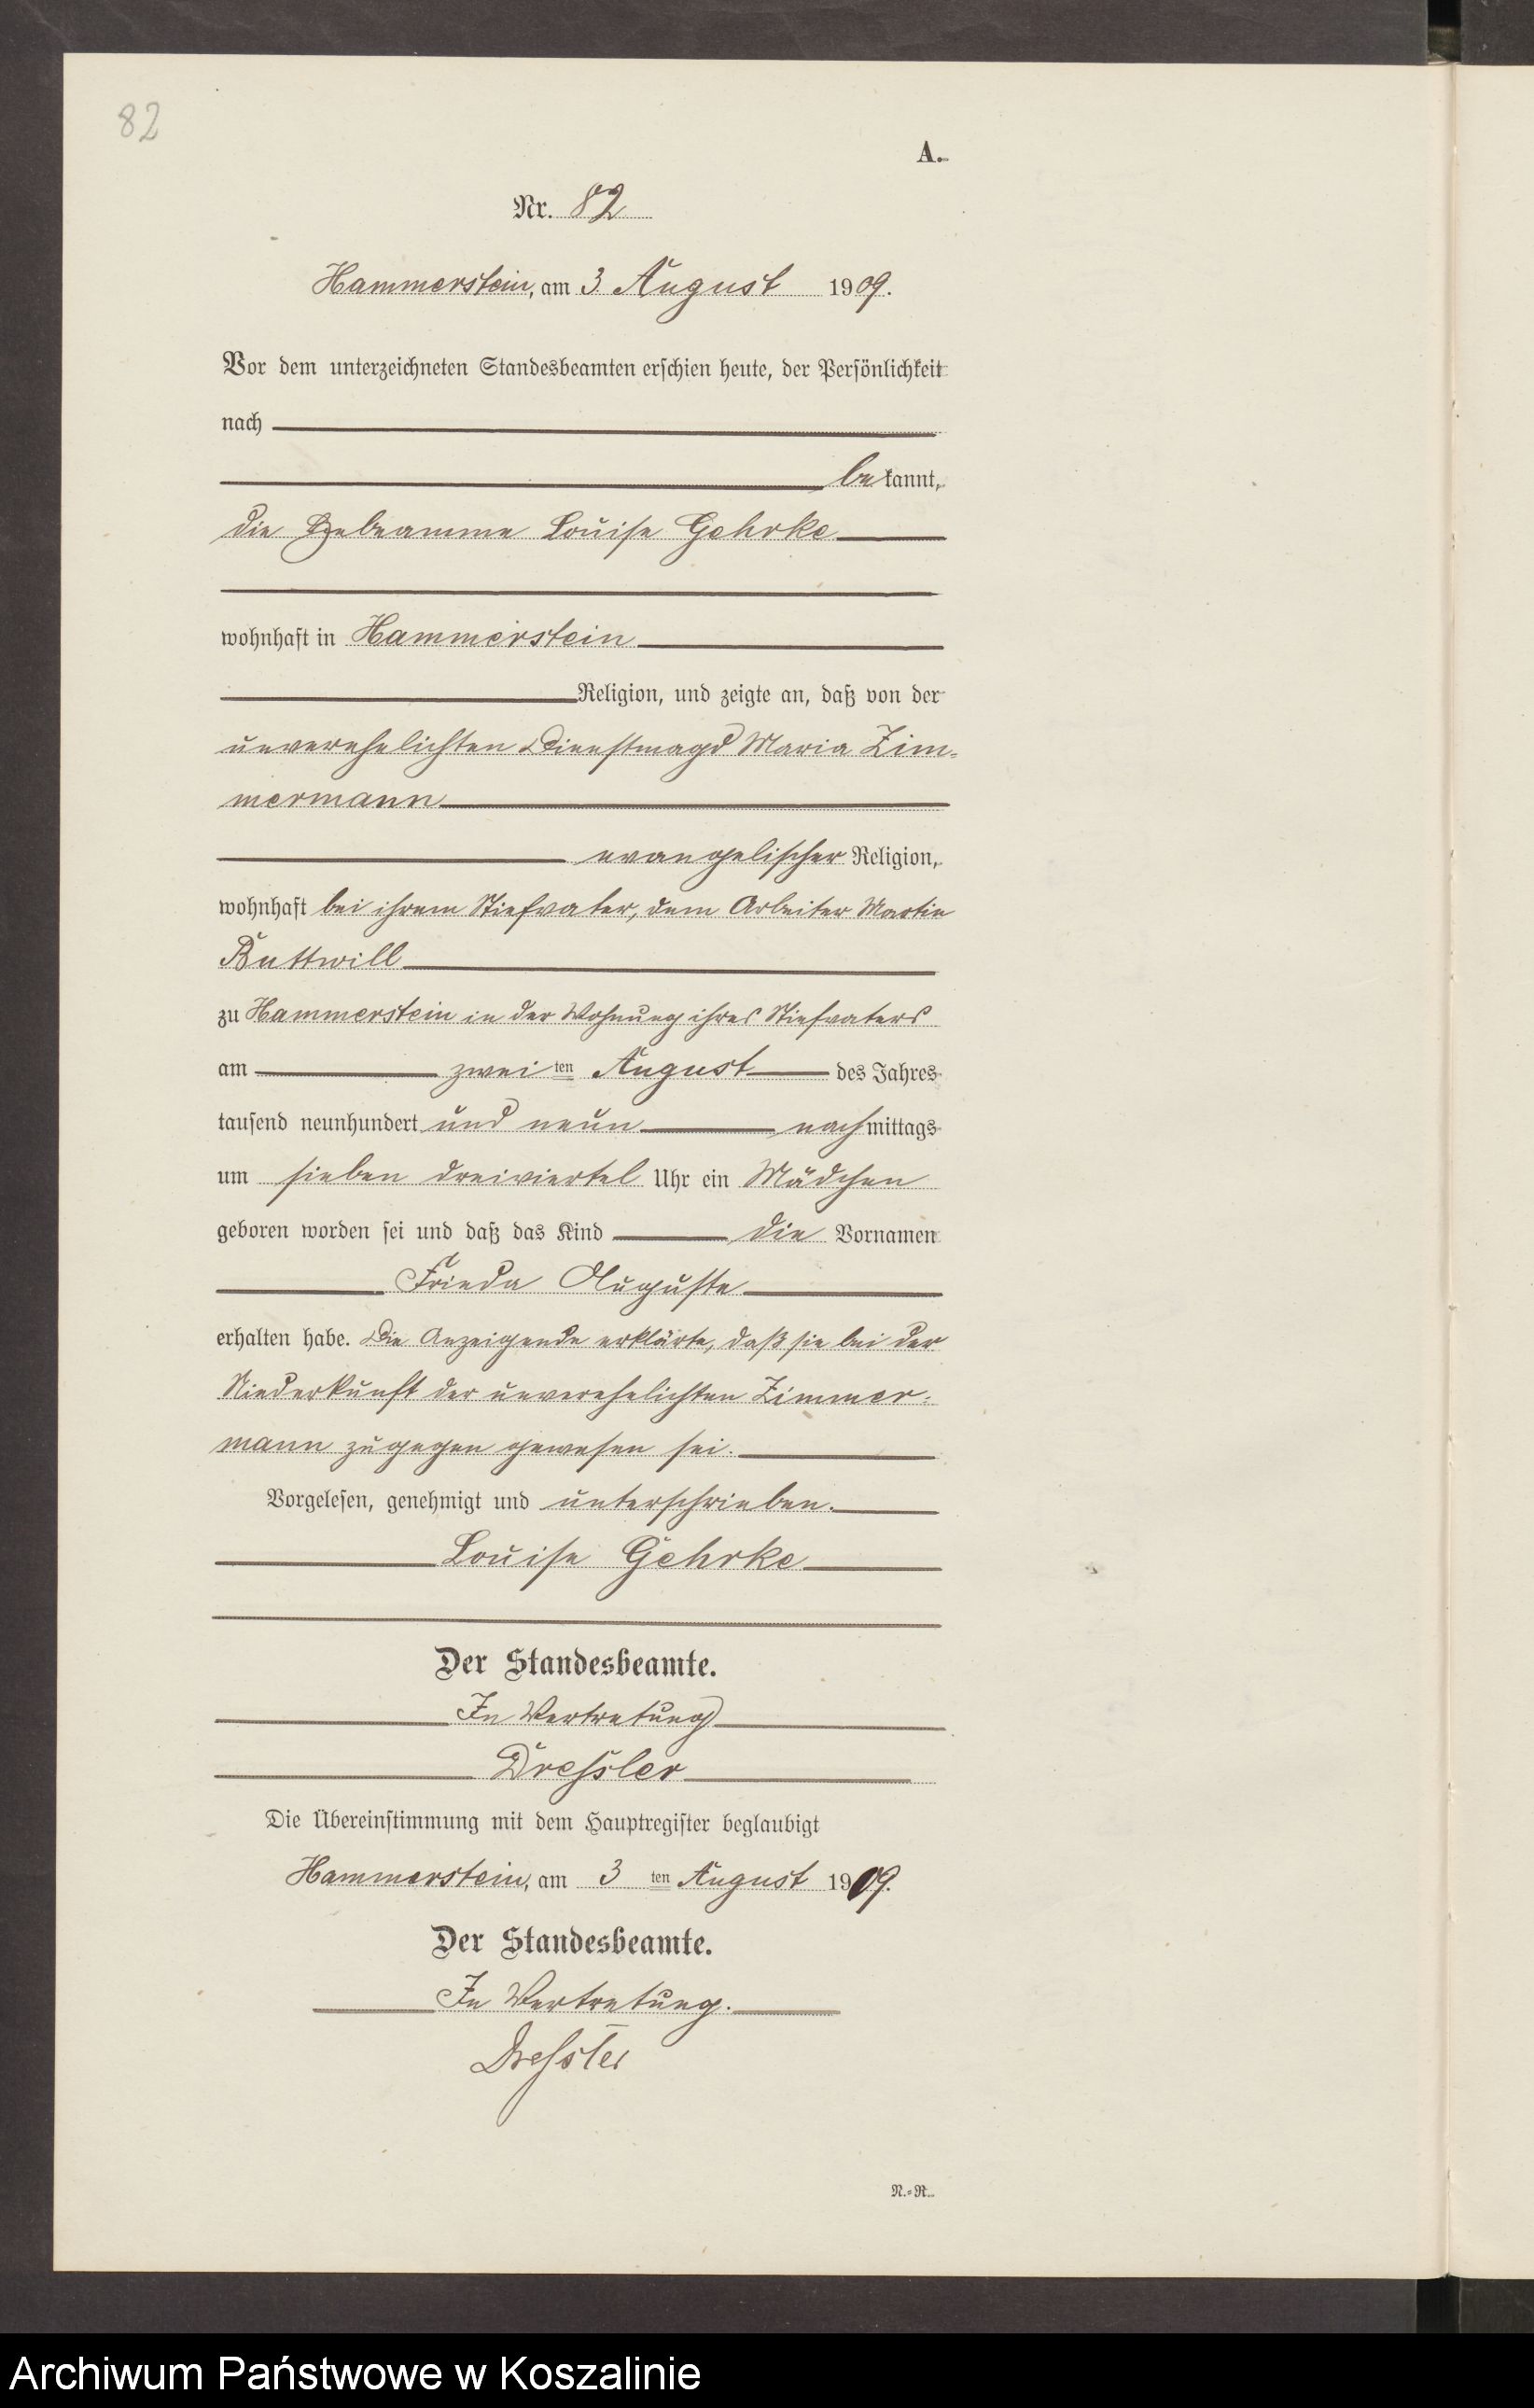 82
A.
Nr. 82
Hammerstein, am 3 August 1909.
Vor dem unterzeichneten Standesbeamten erschien heute, der Persönlichkeit
nach
bekannt,
die Hebeamme Louise Gehrke
wohnhaft in Hammerstein
Religion, und zeigte an, daß von der
unverehelichten Dienstmagd Maria Zim-
mermann
evangelischer Religion,
wohnhaft bei ihrem Stiefvater, dem Arbeiter Martin
Buttwill
zu Hammerstein in der Wohnung ihres Stiefvaters
am zweiten August des Jahres
tausend neunhundert und neun nachmittags
um sieben dreiviertel Uhr ein Mädchen
geboren worden sei und daß das Kind die Vornamen
Frieda Auguste
erhalten habe. Die Anzeigende erklärte, daß sie bei der
Niederkunft der unverehelichten Zimmer-
mann zugegen gewesen sei.
Vorgelesen, genehmigt und unterschrieben.
Louise Gehrke
Der Standesbeamte.
In Vertretung
Dreßler
Die Übereinstimmung mit dem Hauptregister beglaubigt
Hammerstein, am 3 ten August 1909.
Der Standesbeamte.
In Vertretung.
Dreßler
N.=R.
Archiwum Państwowe w Koszalinie